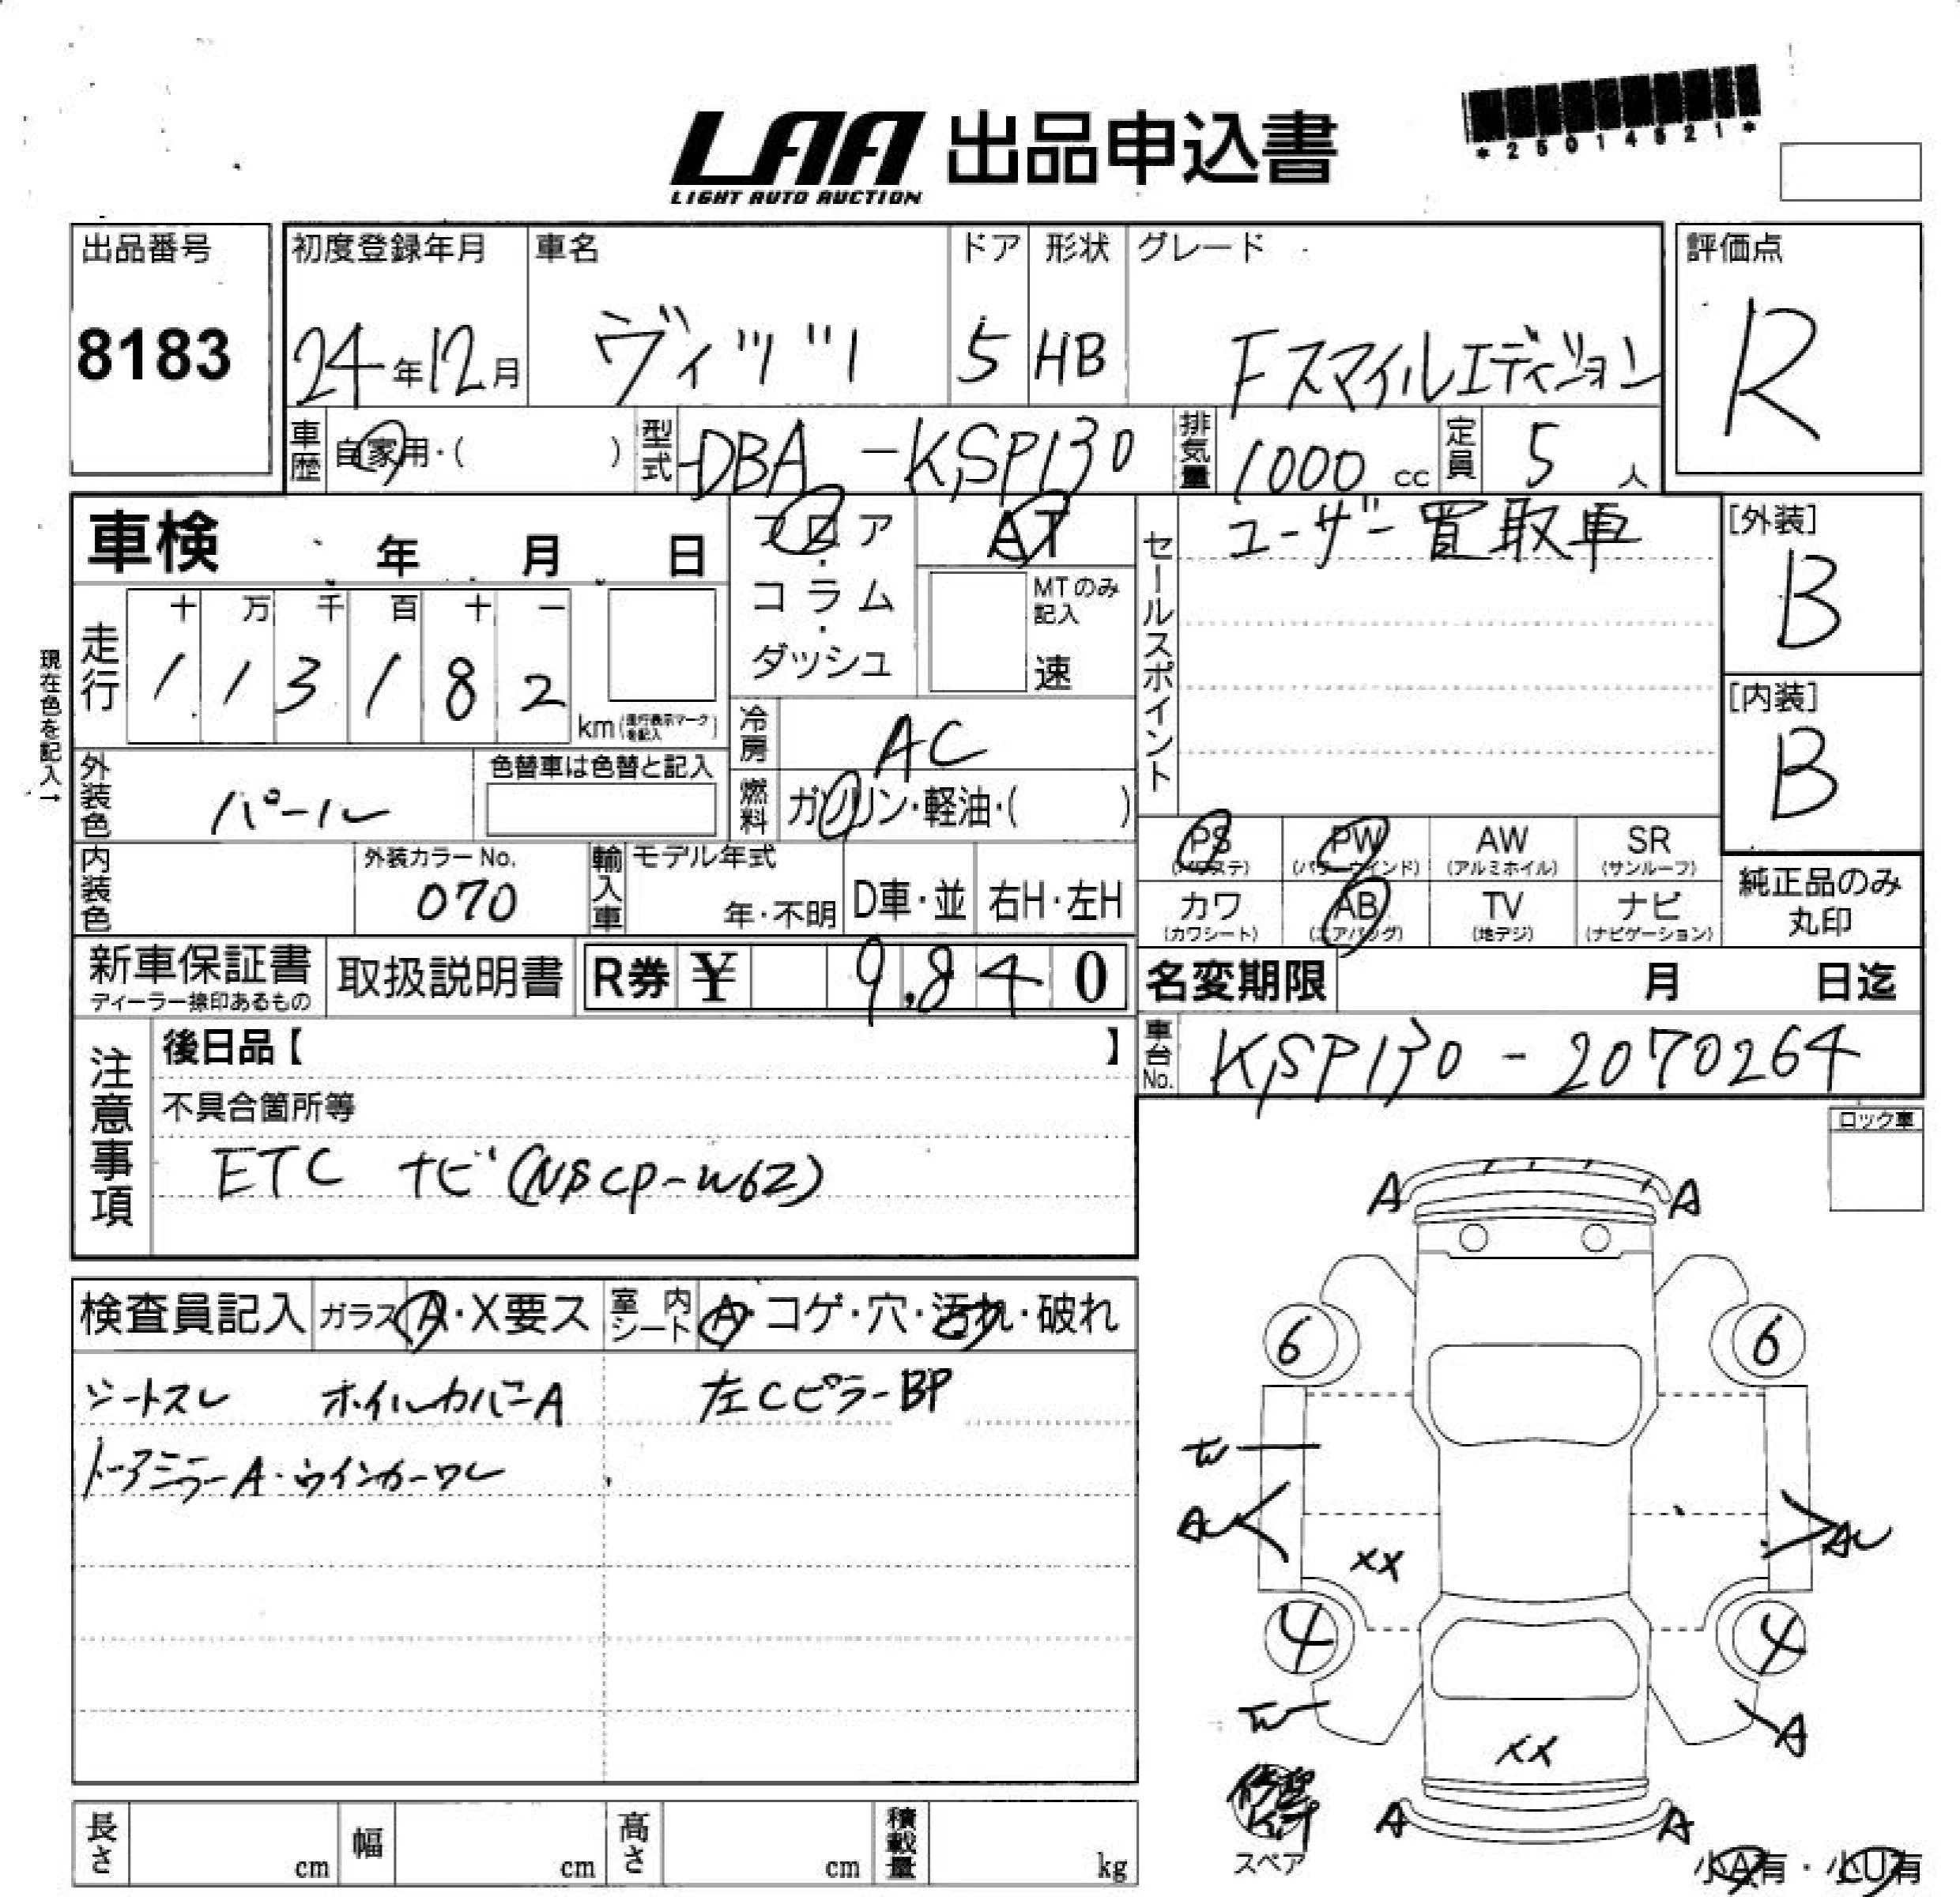 LAA 出品申込書
LIGHT AUTO AUCTION
*25014621*
出品番号
8183
初度登録年月
24年12月
車名
ヴィッツ
ドア
5
形状
HB
グレード
Fスマイルエディション
評価点
R
車歴
自家用・( )
型式
DBA-KSP130
排気量
1000 cc
定員
5 人
車検 年 月 日
フロア・コラム・ダッシュ
AT
MTのみ記入
速
セールスポイント
ユーザー買取車
[外装]
B
[内装]
B
現在色を記入→
走行
十 万 千 百 十 一
1 1 3 1 8 2
km(走行表示マークを記入)
冷房
AC
外装色
パール
色替車は色替と記入
燃料
ガソリン・軽油・( )
PS
(パワステ)
PW
(パワーウインド)
AW
(アルミホイル)
SR
(サンルーフ)
カワ
(カワシート)
AB
(エアバッグ)
TV
(地デジ)
ナビ
(ナビゲーション)
純正品のみ
丸印
内装色
外装カラーNo.
070
輸入車
モデル年式
年・不明
D車・並
右H・左H
新車保証書
ディーラー捺印あるもの
取扱説明書
R券 ¥ 9,840
名変期限 月 日迄
車台No.
KSP130-2070264
注意事項
後日品【 】
不具合箇所等
ETC ナビ(NSCP-W62)
ロック車
検査員記入
ガラス A・X要ス
室内シート A・コゲ・穴・汚れ・破れ
シートスレ ホイルカバーA 左CピラーBP
ドアミラーA・ウインカーワレ
A A
6 6
W
AU AU
XX
4 4
W A
XX
A A
スペア
小A有・小U有
長さ cm
幅 cm
高さ cm
積載量 kg